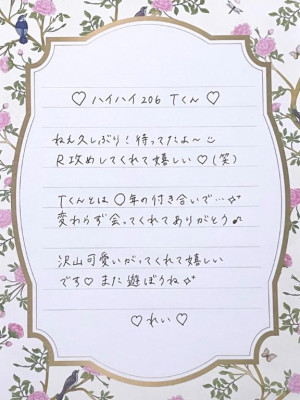 ♡ ハイハイ206 Tくん ♡
ねえ久しぶり！待ってたよ〜☺
R攻めしてくれて嬉しい♡(笑)
Tくんとは〇年の付き合いで…✨
変わらず会ってくれてありがとう♪
沢山可愛いがってくれて嬉しい
です♡ また遊ぼうね✨
♡ れい ♡